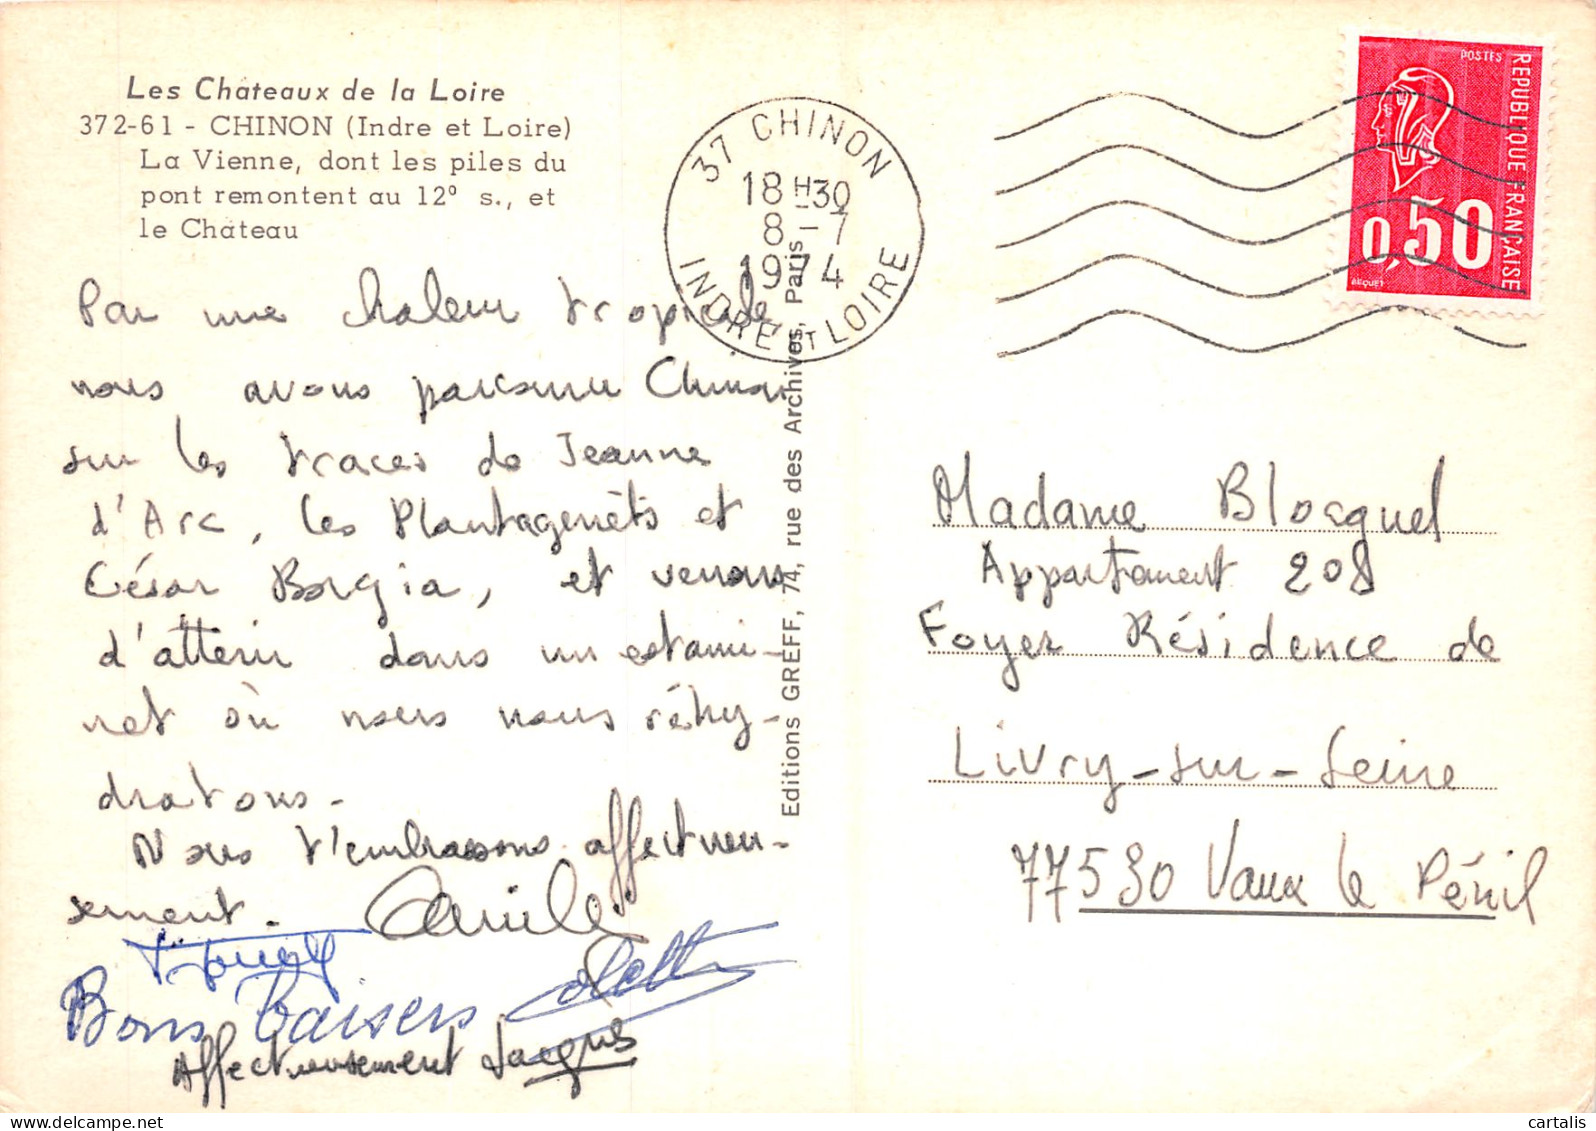 Les Châteaux de la Loire
372-61 - CHINON (Indre et Loire)
La Vienne, dont les piles du
pont remontent au 12° s., et
le Château
Par une chaleur tropicale,
nous avons parcouru Chinon
sur les traces de Jeanne
d'Arc, les Plantagenêts et
César Borgia, et venons
d'atterrir dans un estami-
net où nous nous réhy-
dratons.
Nous t'embrassons affectueu-
sement.
Bons baisers Colette
Affectueusement Jacques
Editions GREFF, 74, rue des Archives, Paris
37 CHINON
18 H 30
8 - 7
1974
INDRE ET LOIRE
POSTES
REPUBLIQUE FRANÇAISE
0,50
BEQUET
Madame Blocquel
Appartement 208
Foyer Résidence de
Livry-sur-Seine
77530 Vaux le Pénil
cartalis